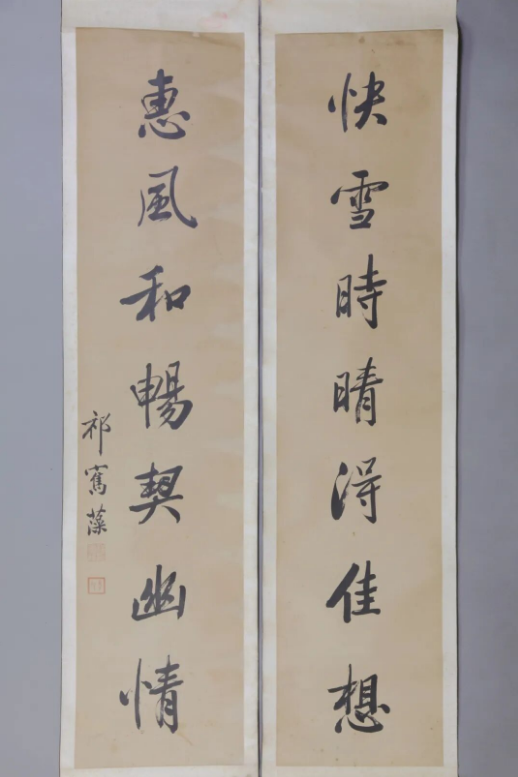 快雪時晴得佳想
惠風和暢契幽情
祁寯藻